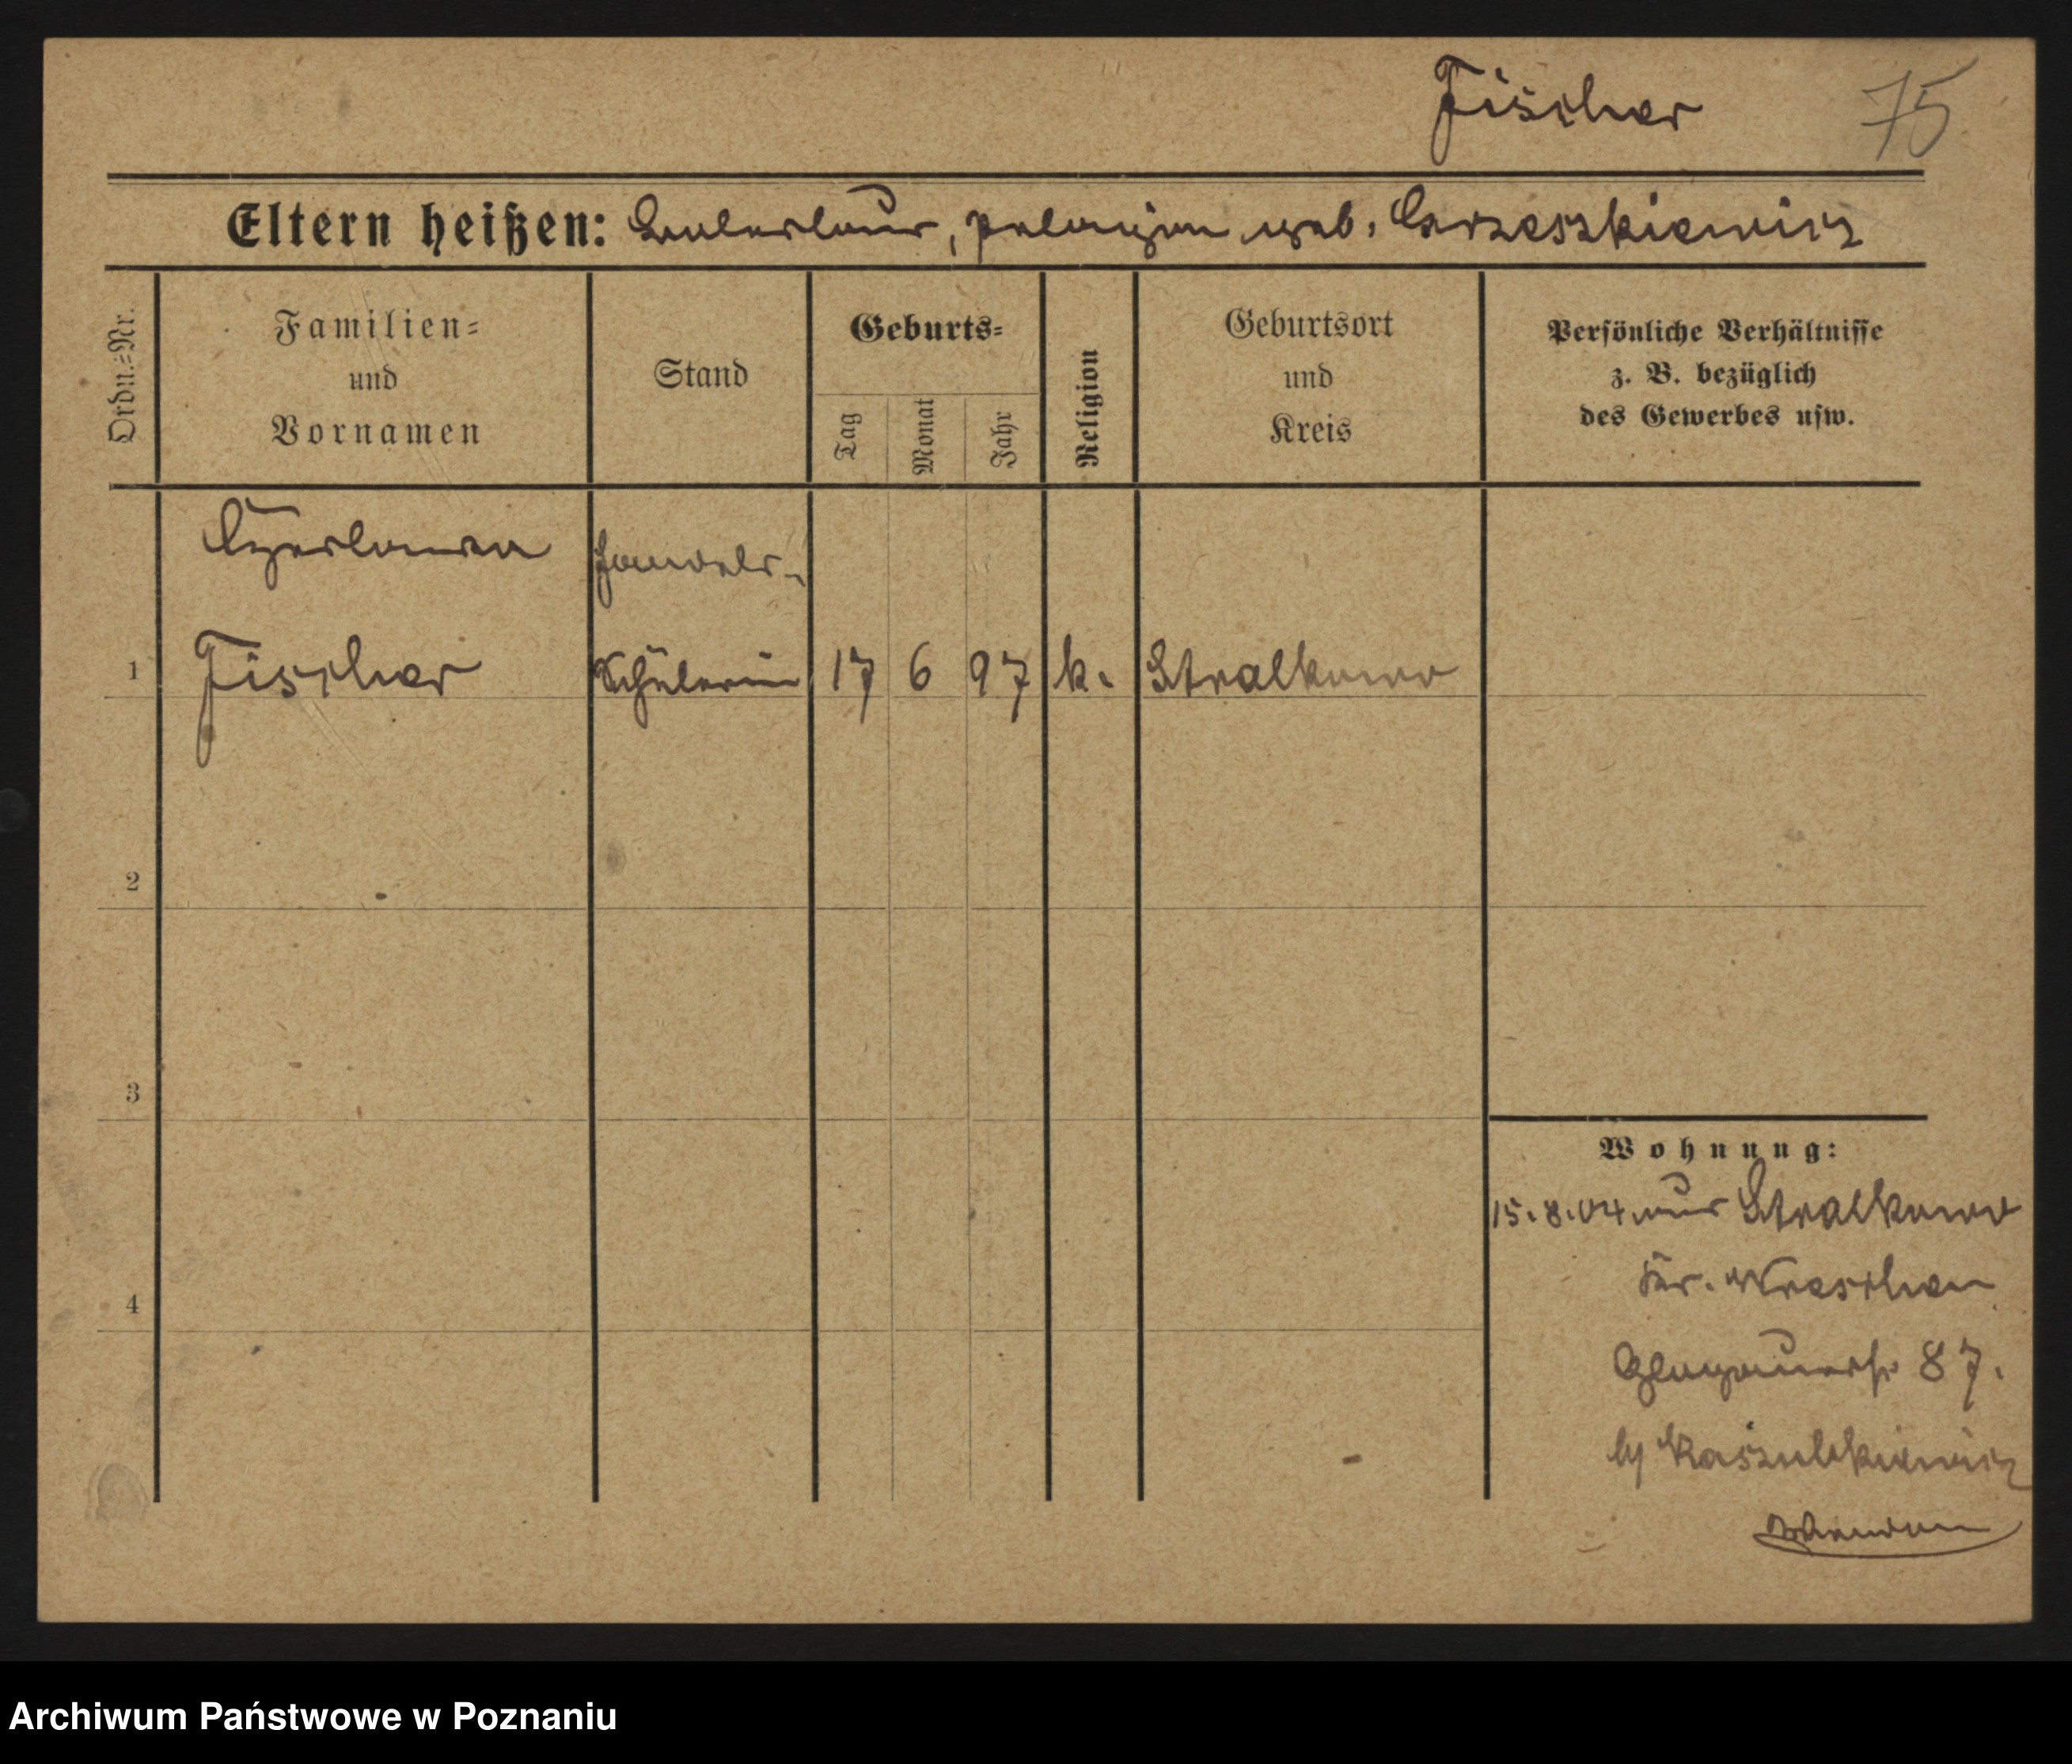 Fischer 75
Eltern heißen: Ladislaus, Pelagia geb. Grzeszkiewicz
Ordn.=Nr.
Familien=
und
Vornamen
Stand
Geburts=
Tag
Monat
Jahr
Religion
Geburtsort
und
Kreis
Persönliche Verhältnisse
z. B. bezüglich
des Gewerbes usw.
Handels-
1 Fischer Schülerin 17 6 97 k. Stralkowo
2
3
4
Wohnung:
15.8.04 aus Stralkowo
Kr. Wreschen
Glogauerstr 87.
b/
Archiwum Państwowe w Poznaniu